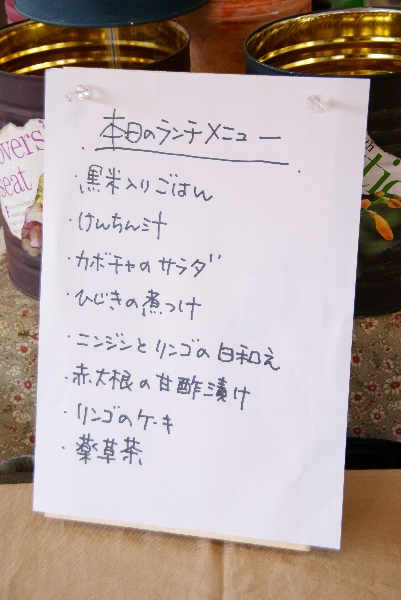 本日のランチメニュー
・黒米入りごはん
・けんちん汁
・カボチャのサラダ
・ひじきの煮つけ
・ニンジンとリンゴの白和え
・赤大根の甘酢漬け
・リンゴのケーキ
・薬草茶
overs'
seat